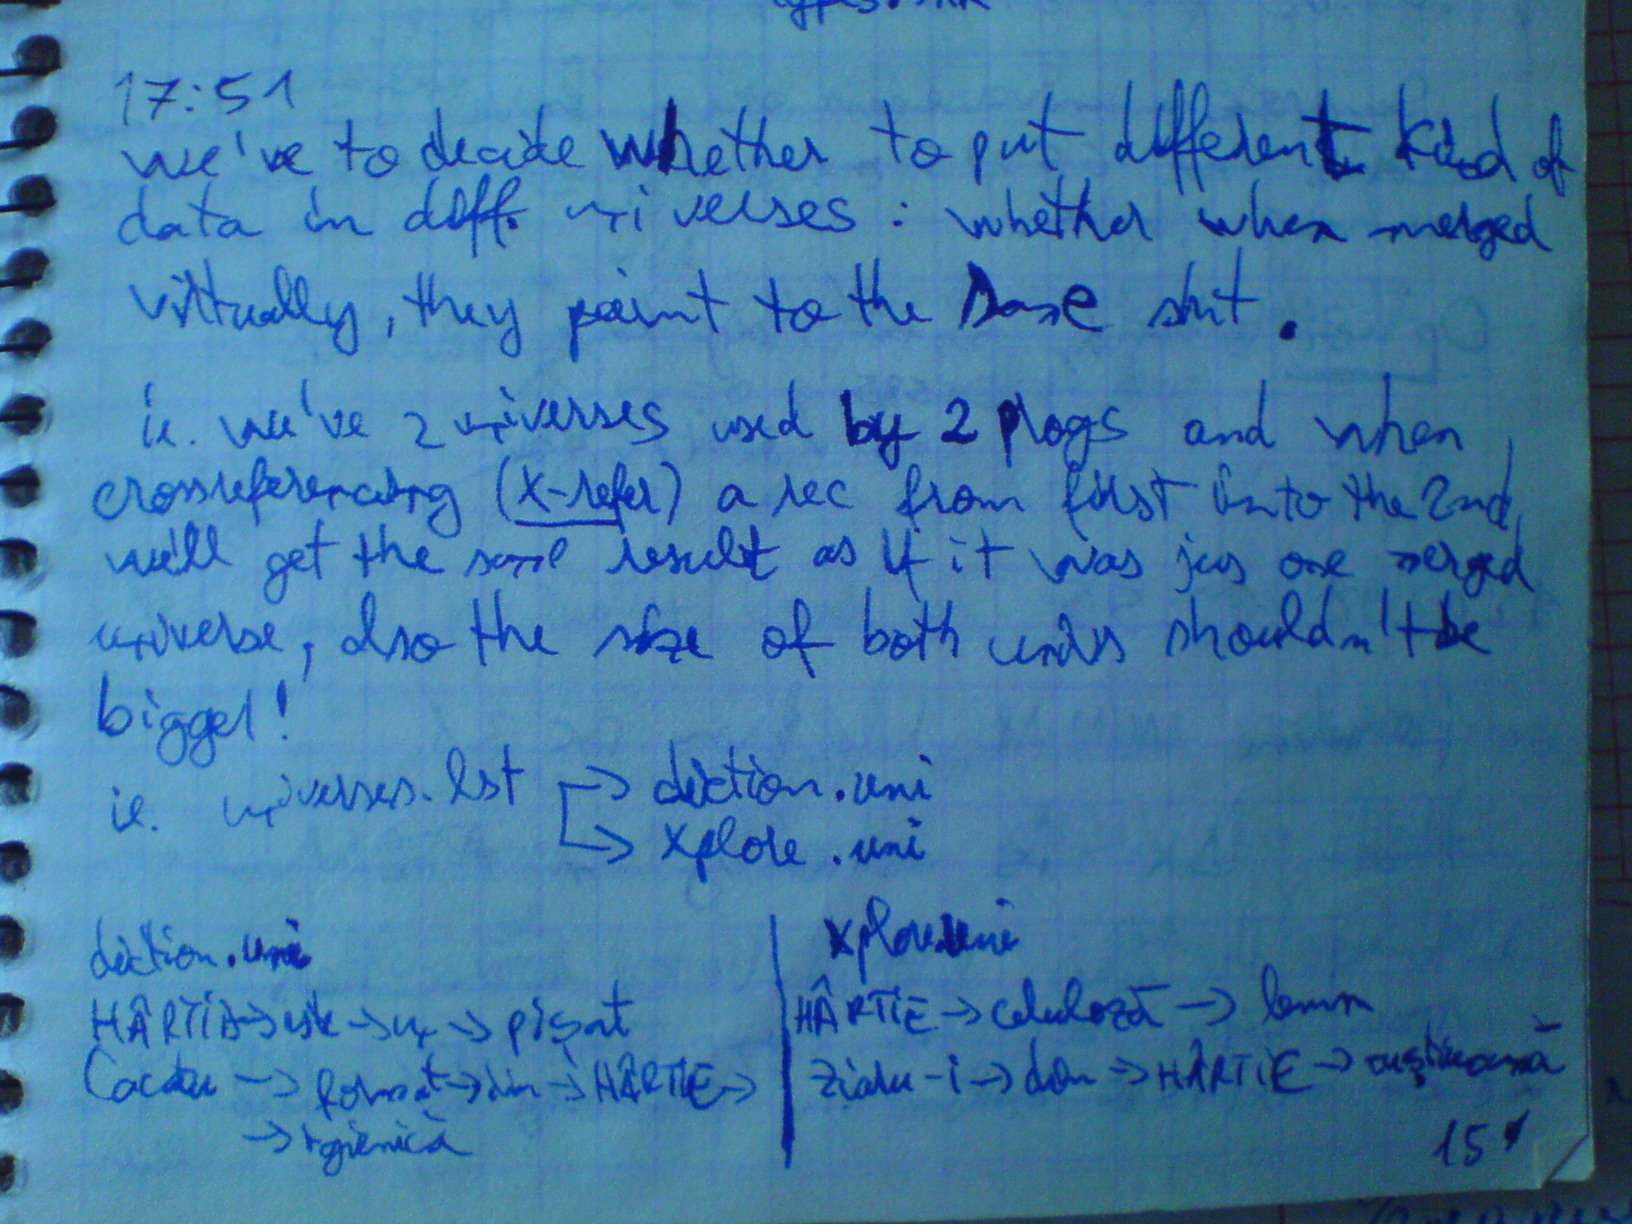 17:51
we've to decide whether to put different kind of
data in diff. universes : whether when merged
virtually, they point to the same shit.
ie. we've 2 universes used by 2 progs and when
crossreferencing (x-refer) a rec from first into the 2nd,
we'll get the same result as if it was jus one merged
universe, also the size of both univs shouldn't be
bigger!
ie. universes.lst → diction.uni
→ xplore.uni
diction.uni
HÂRTIE → este → un → pişat
Cacatu → format → din → HÂRTIE →
→ igienică
xplore.uni
HÂRTIE → celuloză → lemn
ziaru-i → doar → HÂRTIE →
15